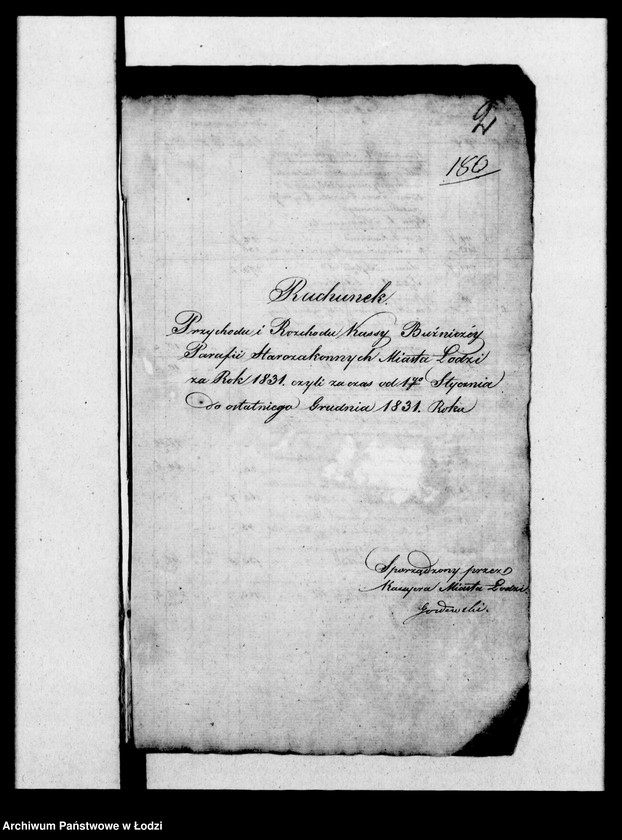 2
186
Rachunek.
Przychodu i Rozchodu Kassy Buźniczéy
Parafii Starozakonnych Miasta Łodzi
za Rok 1831. czyli za czas od 1go Stycznia
do ostatniego Grudnia 1831. Roku
Sporządzony przez
Kassyera Miasta Łodzi
Archiwum Państwowe w Łodzi